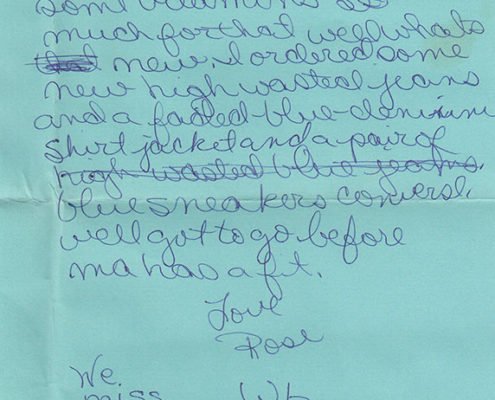 some vitamins so
much for that well whats
new. I ordered some
new high wasted jeans
and a faded blue denimm
shirt jacket and a pair of
high wasted blue jeans
blue sneakers converse.
well got to go before
ma has a fit.
Love
Rose
We
miss